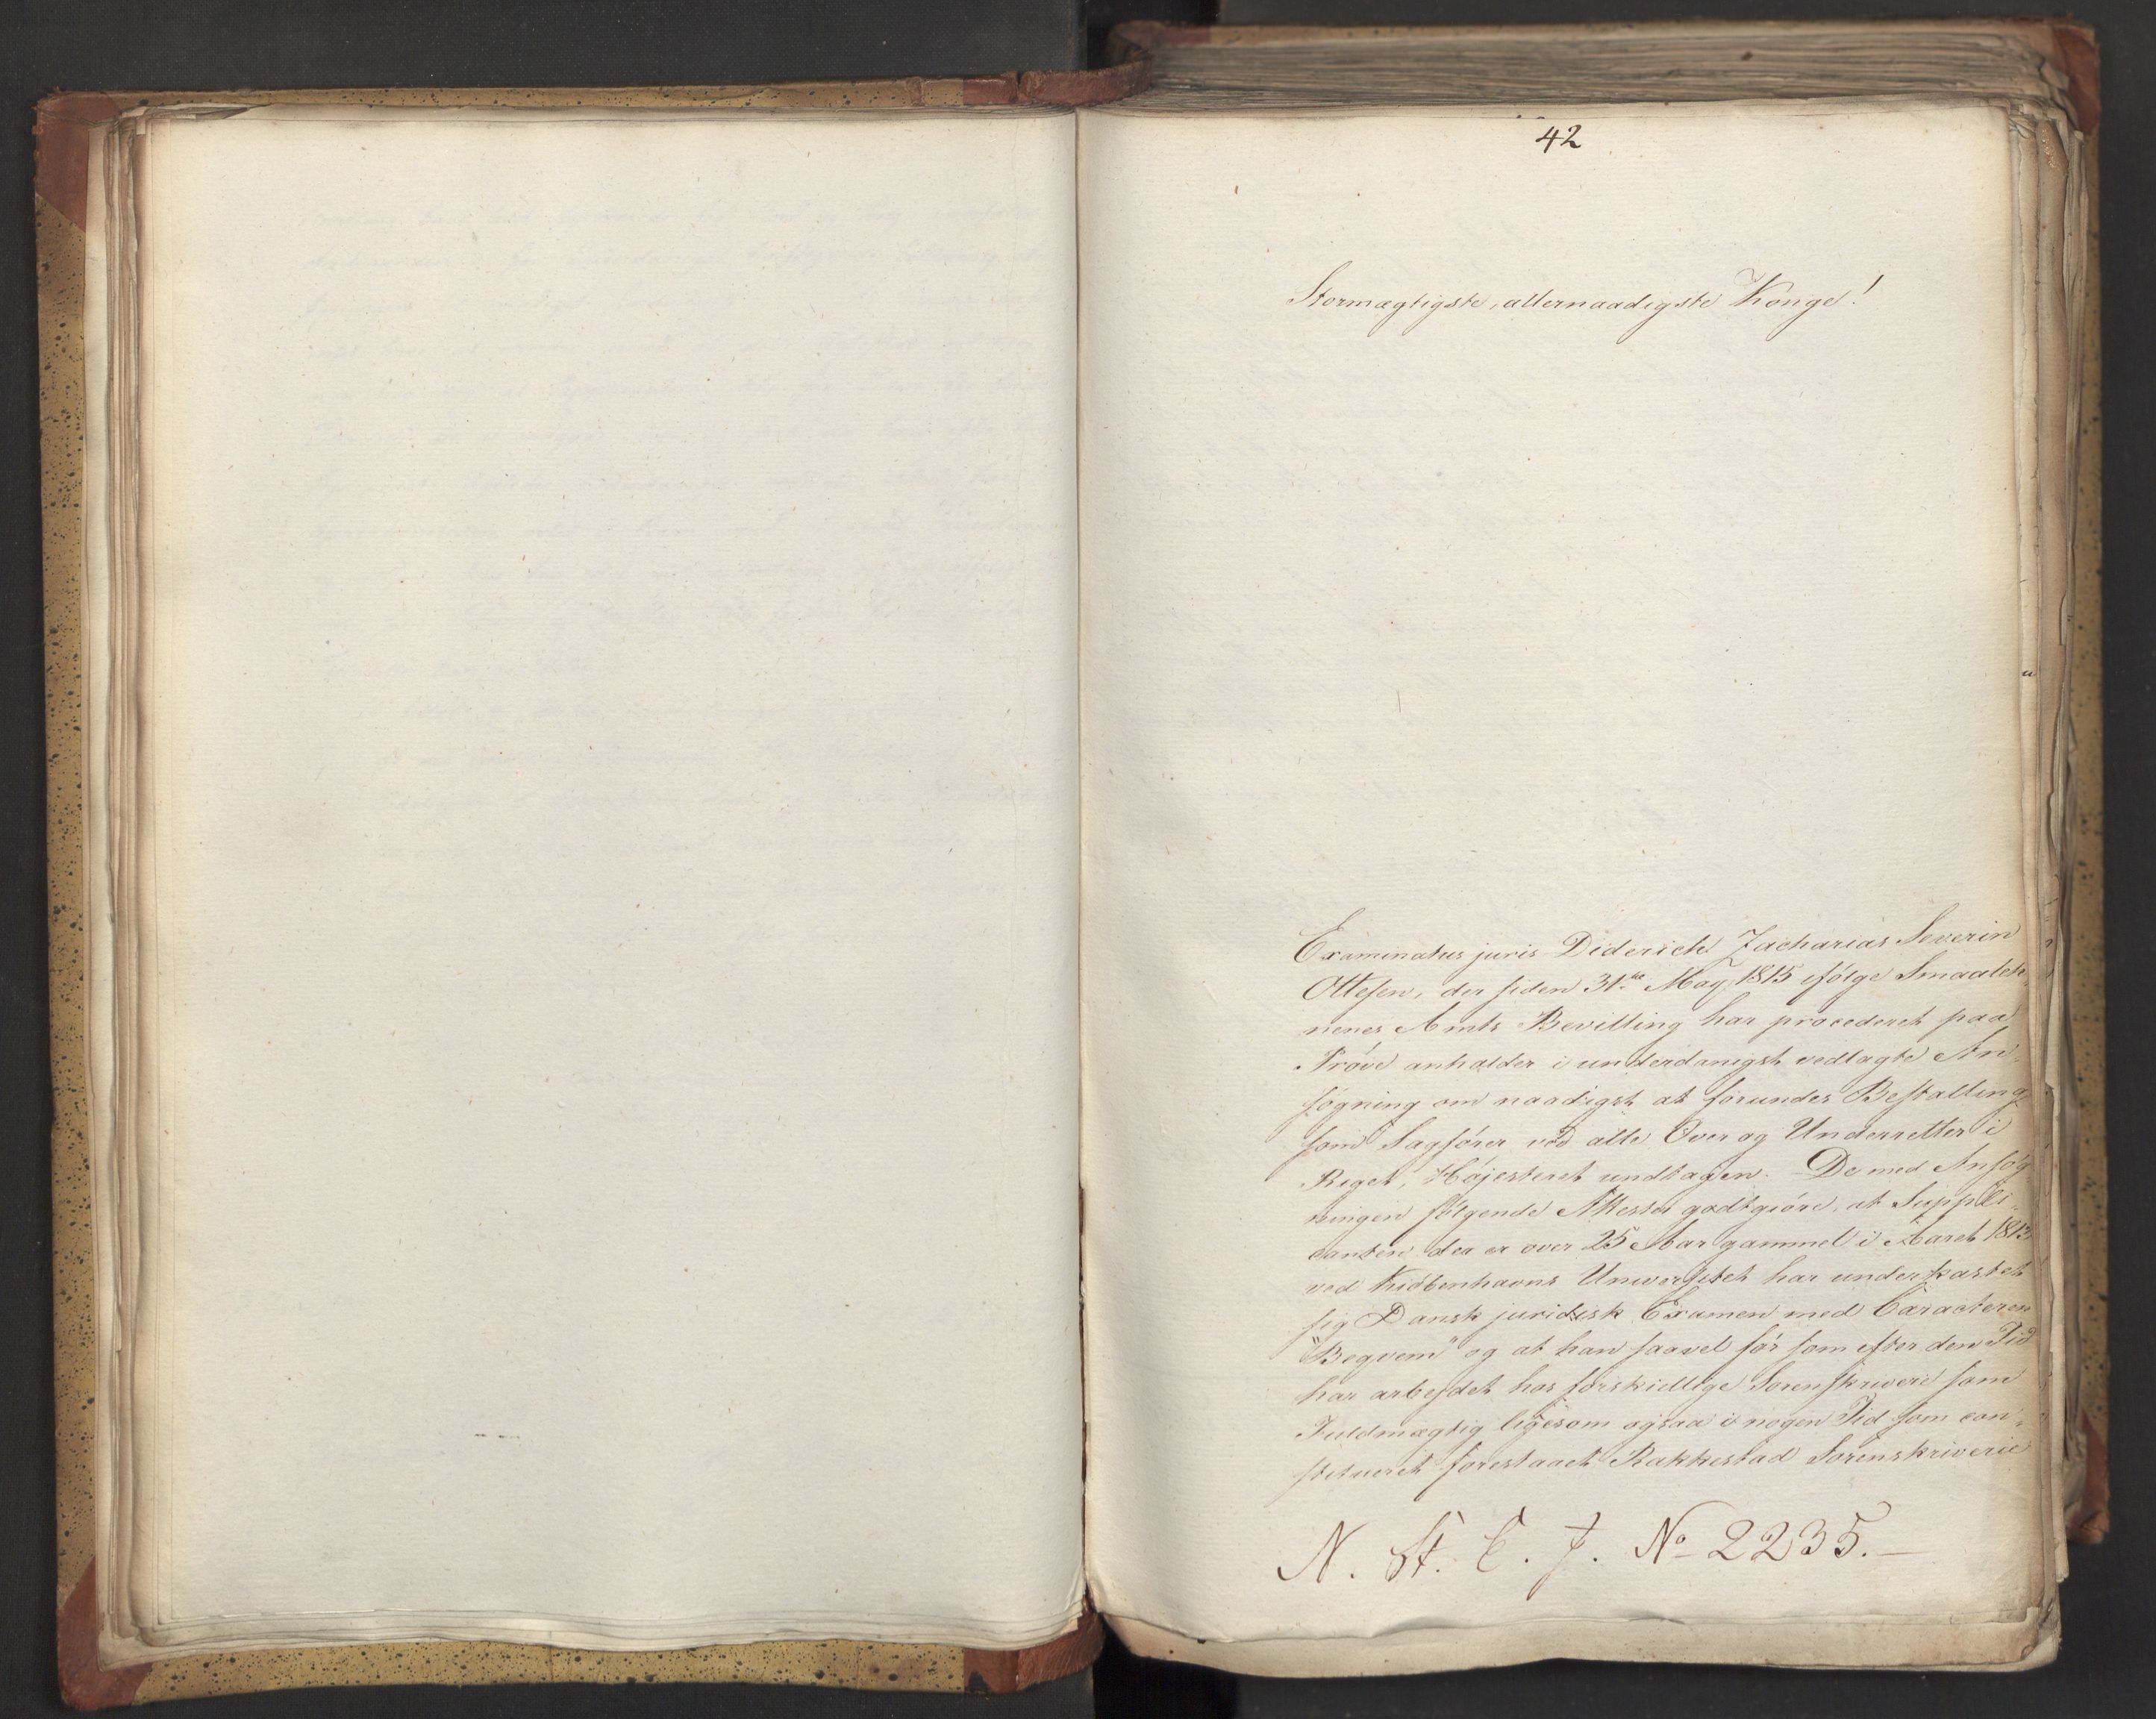 42
Stormægtigste, allernaadigste Konge!
Examinatus juris Diderich Zacharias Severin
Ottesen, der siden 31te May 1815 ifølge Smaaleh-
nenes Amts Bevilling har procederet paa
Prøve anholder i underdanigst vedlagte An-
søgning om naadigst at forundes Bestalling
som Sagfører ved alle Over og Underretter i
Riget, Højesteret undtagen. De med Ansøg-
ningen følgende Attester godtgiøre, at Suppli-
canten der er over 25 Aar gammel i Aaret 1813
ved Kiøbenhavns Universitet har underkastet
sig Dansk juridisk Examen med Caracteren
"Beqvem" og at han saavel før som efter den Tid
har arbejdet hos forskiellige Sorenskrivere som
Fuldmægtig ligesom ogsaa i nogen Tid som con-
stitueret forestaaet Rakkestad Sorenskriverie
N. St. C. J. No 2235.-